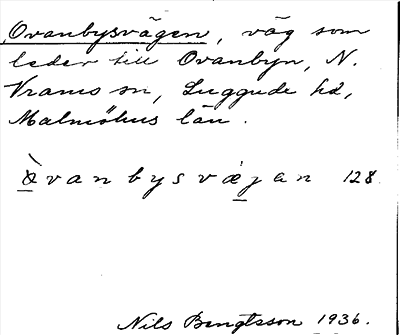 Ovanbysvägen, väg som
leder till Ovanbyn, N.
Vrams sn, Luggude hd,
Malmöhus län.
åvanbysvæjan 128
Nils Bengtsson 1936.